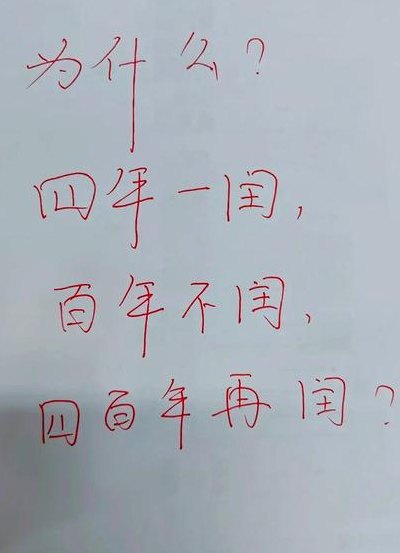 为什么?
四年一闰,
百年不闰,
四百年再闰?